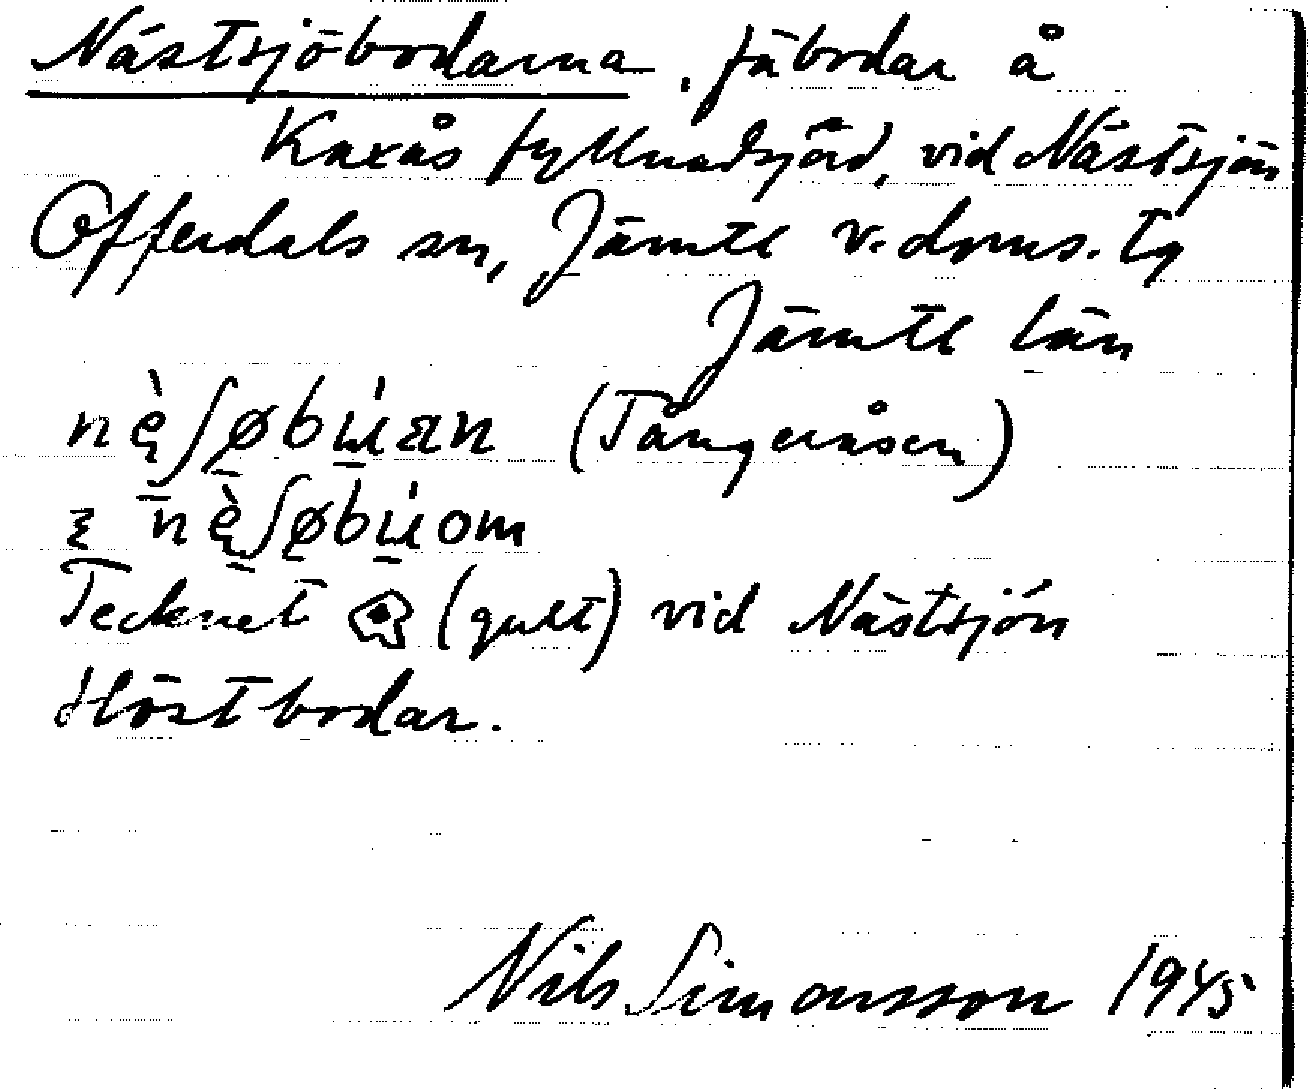 Nästsjöbodarna, fäbodar å
Kaxås fyllnadsjord, vid Nästsjön
Offerdals sn, Jämtl v. doms. tg
Jämtl län
(Tångeråsen)
Tecknet (gult) vid Nästsjön
Höstbodar.
Nils Simonsson 1945